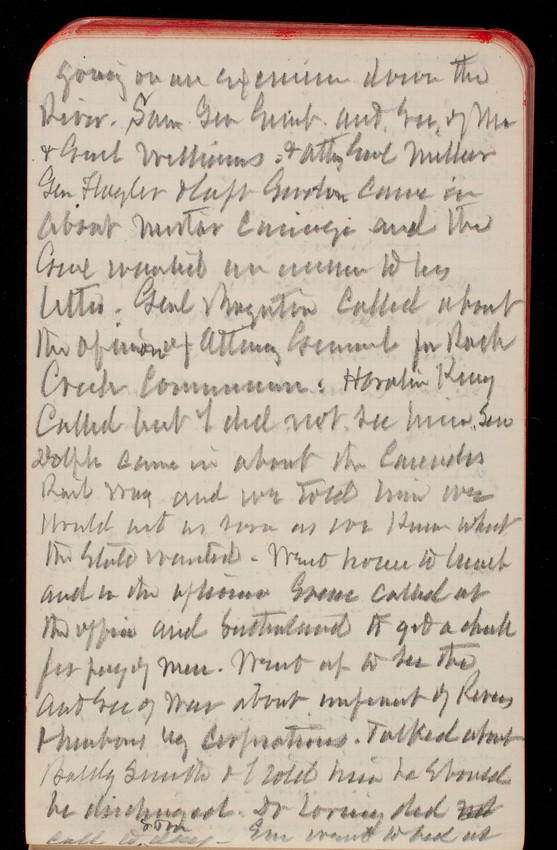 going on an excursion down the
River. Saw Gen Grant. and Sec. of War
& Genl Williams. & Atty Genl Miller
Gen Flagler & Capt Gordon came in
about mortar carriage and the
Gen wanted an answer to his
letter. Genl Boynton called about
the opinion of Attorney General for Rock
Creek Commission. Horatio King
Called but I did not see him. Sen
Dolph came in about the Cascades
Rail Way and we told him we
would act as soon as we knew what
the State wanted. Went home to lunch
and in the afternoon Greene called at
the office and to get a check
for pay of men. Went up to see the
Asst Sec of War about improvement of Rivers
& harbors by corporations. Talked about
Baldy Smith & I told him he should
be discharged. Dr Loring did not
call to day. soon Em went to bed at